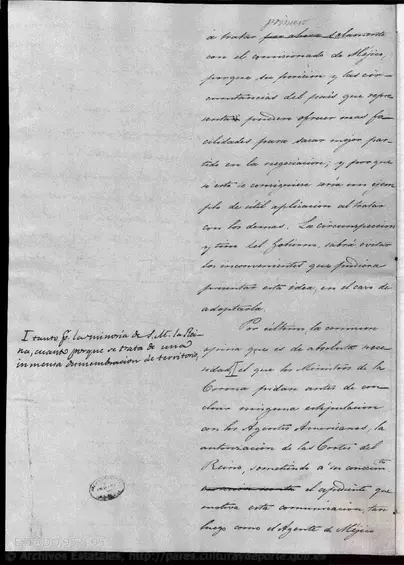 primero
á tratar por ahora solamente
con el comisionado de Méjico,
porque su posicion y las cir-
cunstancias del pais que repre-
senta pudiera ofrecer mas fa-
cilidades para sacar mejor par-
tido en la negociacion; y porque
si esto se consiguiese sería un ejem-
plo de util aplicacion al tratar
con los demas. La circunspeccion
y tino del Gobierno, sabrá evitar
los inconvenientes que pudiera
presentar esta idea, en el caso de
adoptarla.
Por último, la comision
opina que es de absoluta nece-
sidad I el que los Ministros de la
Corona pidan antes de con-
cluir ninguna estipulacion
con los Agentes Americanos, la
autorizacion de las Cortes del
Reino, sometiendo á su conocim-
el expediente que
motiva esta comunicacion, tan
luego como el Agente de Méjico
I tanto p.r la minoría de S.M. la Rei-
na, cuanto porque se trata de una
inmensa desmembracion de territorio,
© Archivos Estatales, http://pares.culturaydeporte.gob.es